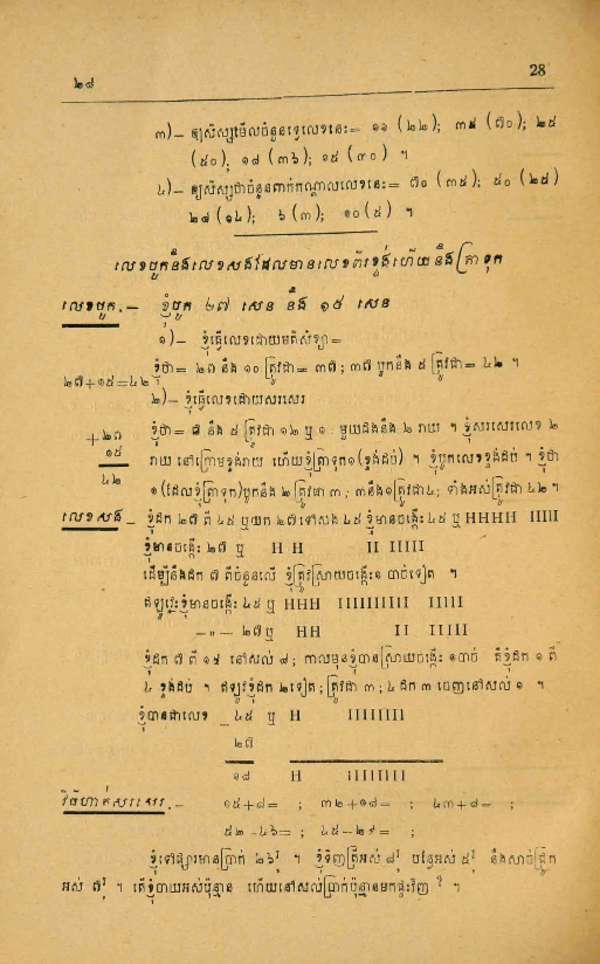 ២៨ 28
៣)– ឲ្យសិស្សមើលចំនួនទ្វេលេខនេះ= ១១ (២២); ៣៥ (៧០); ២៥
(៥០); ១៨ (៣៦); ១៥ (៣០) ។
៤)– ឲ្យសិស្សថាចំនួនពាក់កណ្ដាលលេខនេះ= ៧០ (៣៥); ៥០ (២៥)
២៨ (១៤); ៦ (៣); ១០ (៥) ។
លេខបូកនឹងលេខសងដែលមានលេខពីរខ្ទង់ហើយនឹងត្រាទុក
លេខបូក.– ខ្ញុំបូក ២៧ សេន នឹង ១៥ សេន
១)– ខ្ញុំធ្វើលេខដោយមតិសំខ្យា=
ខ្ញុំថា= ២៧ នឹង ១០ ត្រូវជា= ៣៧; ៣៧ បូកនឹង ៥ ត្រូវជា= ៤២ ។
២៧+១៥=៤២
២)– ខ្ញុំធ្វើលេខដោយសរសេរ
+២៧ ខ្ញុំថា= ៧ នឹង ៥ ត្រូវជា ១២ ឬ ១ មួយដងនឹង ២ រាយ ។ ខ្ញុំសរសេរលេខ ២
១៥ រាយ នៅក្រោមខ្ទង់រាយ ហើយខ្ញុំត្រាទុក១(ខ្ទង់ដប់) ។ ខ្ញុំបូកលេខខ្ទង់ដប់ ។ ខ្ញុំថា
៤២ ១(ដែលខ្ញុំត្រាទុក)បូកនឹង ២ ត្រូវជា ៣; ៣នឹង១ត្រូវជា៤; ទាំងអស់ត្រូវជា ៤២ ។
លេខសង – ខ្ញុំដក ២៧ ពី ៤៥ ឬយក ២៧ទៅសង ៤៥ ខ្ញុំមានចង្កើះ ៤៥ ឬ HHHH IIIII
ខ្ញុំមានចង្កើះ ២៧ ឬ H H II IIIII
ដើម្បីនឹងដក ៧ ពីចំនួនលើ ខ្ញុំត្រូវស្រាយចង្កើះ១ បាច់ទៀត ។
ឥឡូវនេះខ្ញុំមានចង្កើះ ៤៥ ឬ HHH IIIIIIIIII IIIII
–„– ២៧ឬ HH II IIIII
ខ្ញុំដក ៧ ពី ១៥ នៅសល់ ៨; កាលមុនខ្ញុំបានស្រាយចង្កើះ ១បាច់ គឺខ្ញុំដក ១ ពី
៤ ខ្ទង់ដប់ ។ ឥឡូវខ្ញុំដក ២ទៀត; ត្រូវជា ៣; ៤ ដក ៣ ចេញនៅសល់ ១ ។
ខ្ញុំបានជាលេខ – ៤៥ ឬ H IIIIIIII
២៧
១៨ H IIIIIIII
វិធីហាត់សរសេរ.– ១៥+៨= ; ៣២+១៨= ; ៤៣+៨= ;
៥២–៤៦= ; ៤៥–២៩= ;
ខ្ញុំទៅផ្សារមានប្រាក់ ២៦៛ ។ ខ្ញុំទិញត្រីអស់ ៨៛ បន្លែអស់ ៥៛ នឹងសាច់ជ្រូក
អស់ ៧៛ ។ តើខ្ញុំចាយអស់ប៉ុន្មាន ហើយនៅសល់ប្រាក់ប៉ុន្មានមកផ្ទះវិញ ? ។